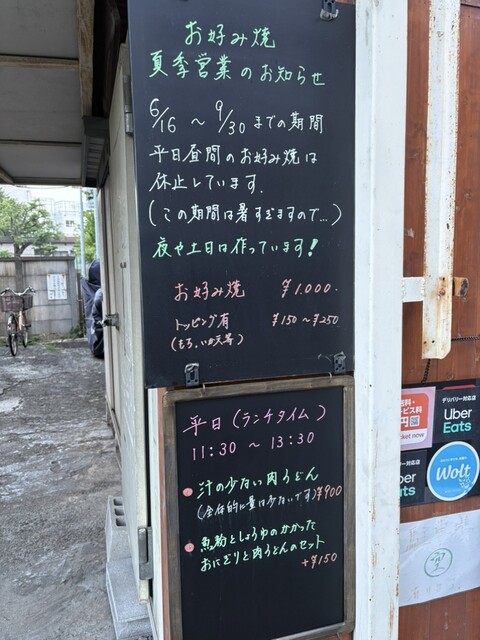 お好み焼
夏季営業のお知らせ
6/16 〜 9/30 までの期間
平日昼間のお好み焼は
休止しています.
(この期間は暑すぎますので…)
夜や土日は作っています!
お好み焼 ¥1.000.
トッピング有 ¥150〜¥250
(もち、いか天等)
平日(ランチタイム)
11:30 〜 13:30
汁の少ない肉うどん
(全体的に量は少ないです)¥900
魚粉としょうゆのかかった
おにぎりと肉うどんのセット
+¥150
デリバリー対応店
Uber
Eats
Wolt
ket now
円